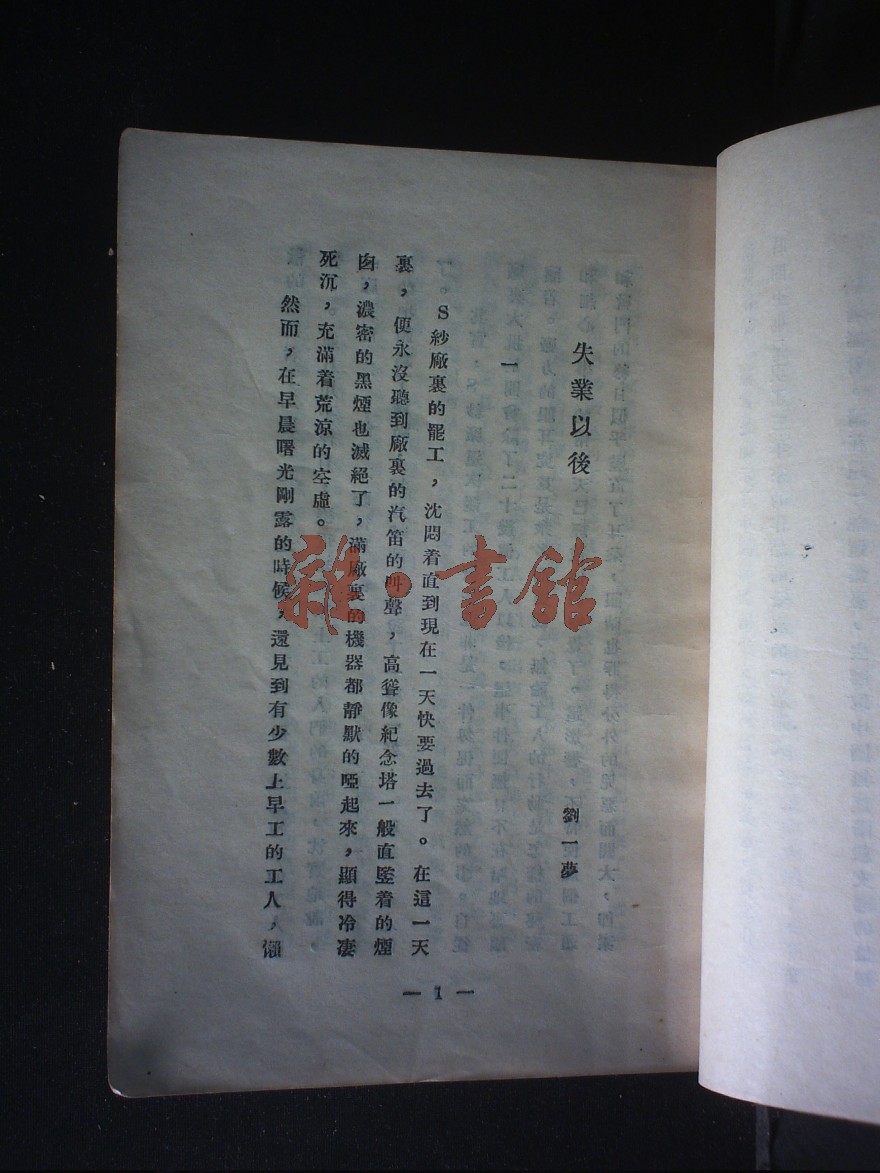 失業以後
劉一夢
一
S紗廠裏的罷工，沈悶着直到現在一天快要過去了。在這一天
裏，便永沒聽到廠裏的汽笛的叫聲，高聳像紀念塔一般直豎着的煙
囱，濃密的黑煙也滅絕了，滿廠裏的機器都靜默的啞起來，顯得冷淒
死沉，充滿着荒涼的空虛。
然而，在早晨曙光剛露的時候，還見到有少數上早工的工人，懶
— 1 —
雜·書館